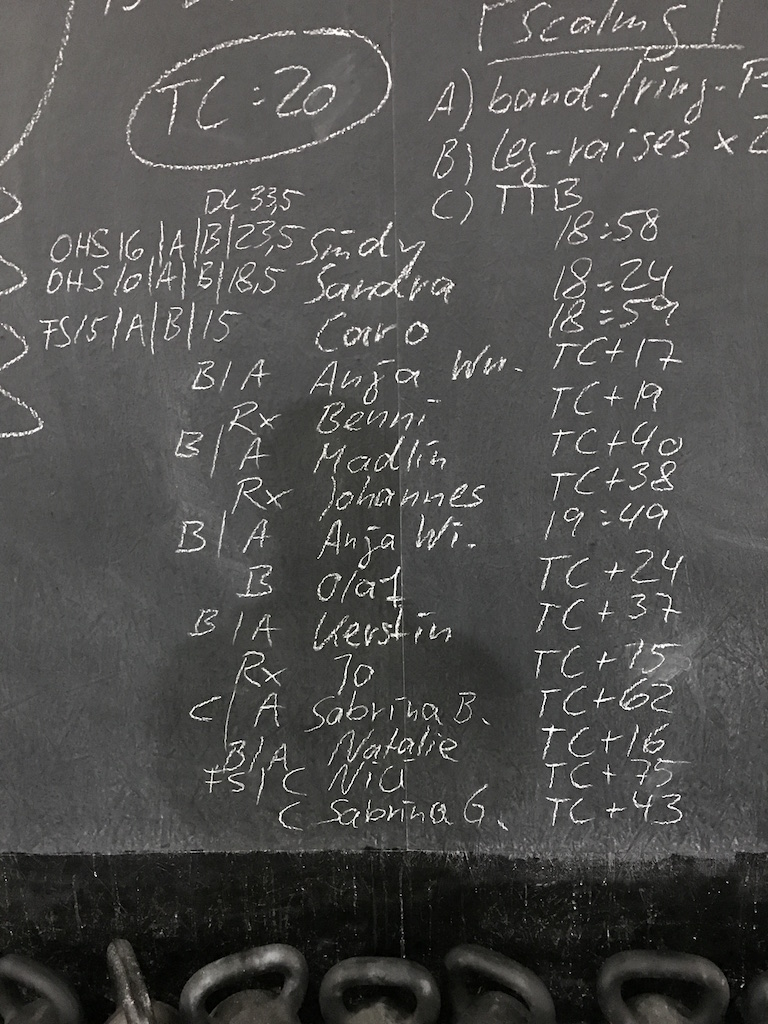 [scaling]
TC = 20
A) band-/ring-
B) leg-raises x 2
C) TTB
DL 33,5
OHS 16 | A | B | 23,5 Sindy 18:58
OHS 10 | A | B | 18,5 Sandra 18:24
FS 15 | A | B | 15 Caro 18:59
B / A Anja Wn. TC + 17
Rx Benni TC + 19
B / A Madlin TC + 40
Rx Johannes TC + 38
B / A Anja Wi. 19:49
B Olaf TC + 24
B / A Kerstin TC + 37
Rx Jo TC + 15
C / A Sabrina B. TC + 62
B / A Natalie TC + 16
FS / C Nici TC + 75
C Sabrina G. TC + 43